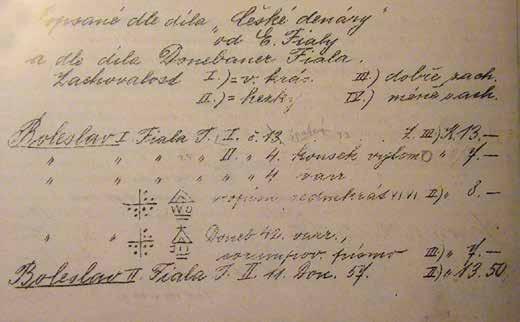 popsané dle díla „České denáry"
od E. Fialy
a dle díla Donebauer Fiala.
Zachovalost I.) = v. krás. III.) dobře zach.
II.) = hezký IV.) méně zach.
Boleslav I Fiala T. I. č. 13. Z. III.) K 13.—
" " " " II. " 4. kousek vylom " 7.—
" " " " " 4. varr
II.) " 8.—
" " Doneb 42. varr.,
písmo III.) " 7.—
Boleslav II. Fiala T. II. 11. Don. 57. II.) " 13.50